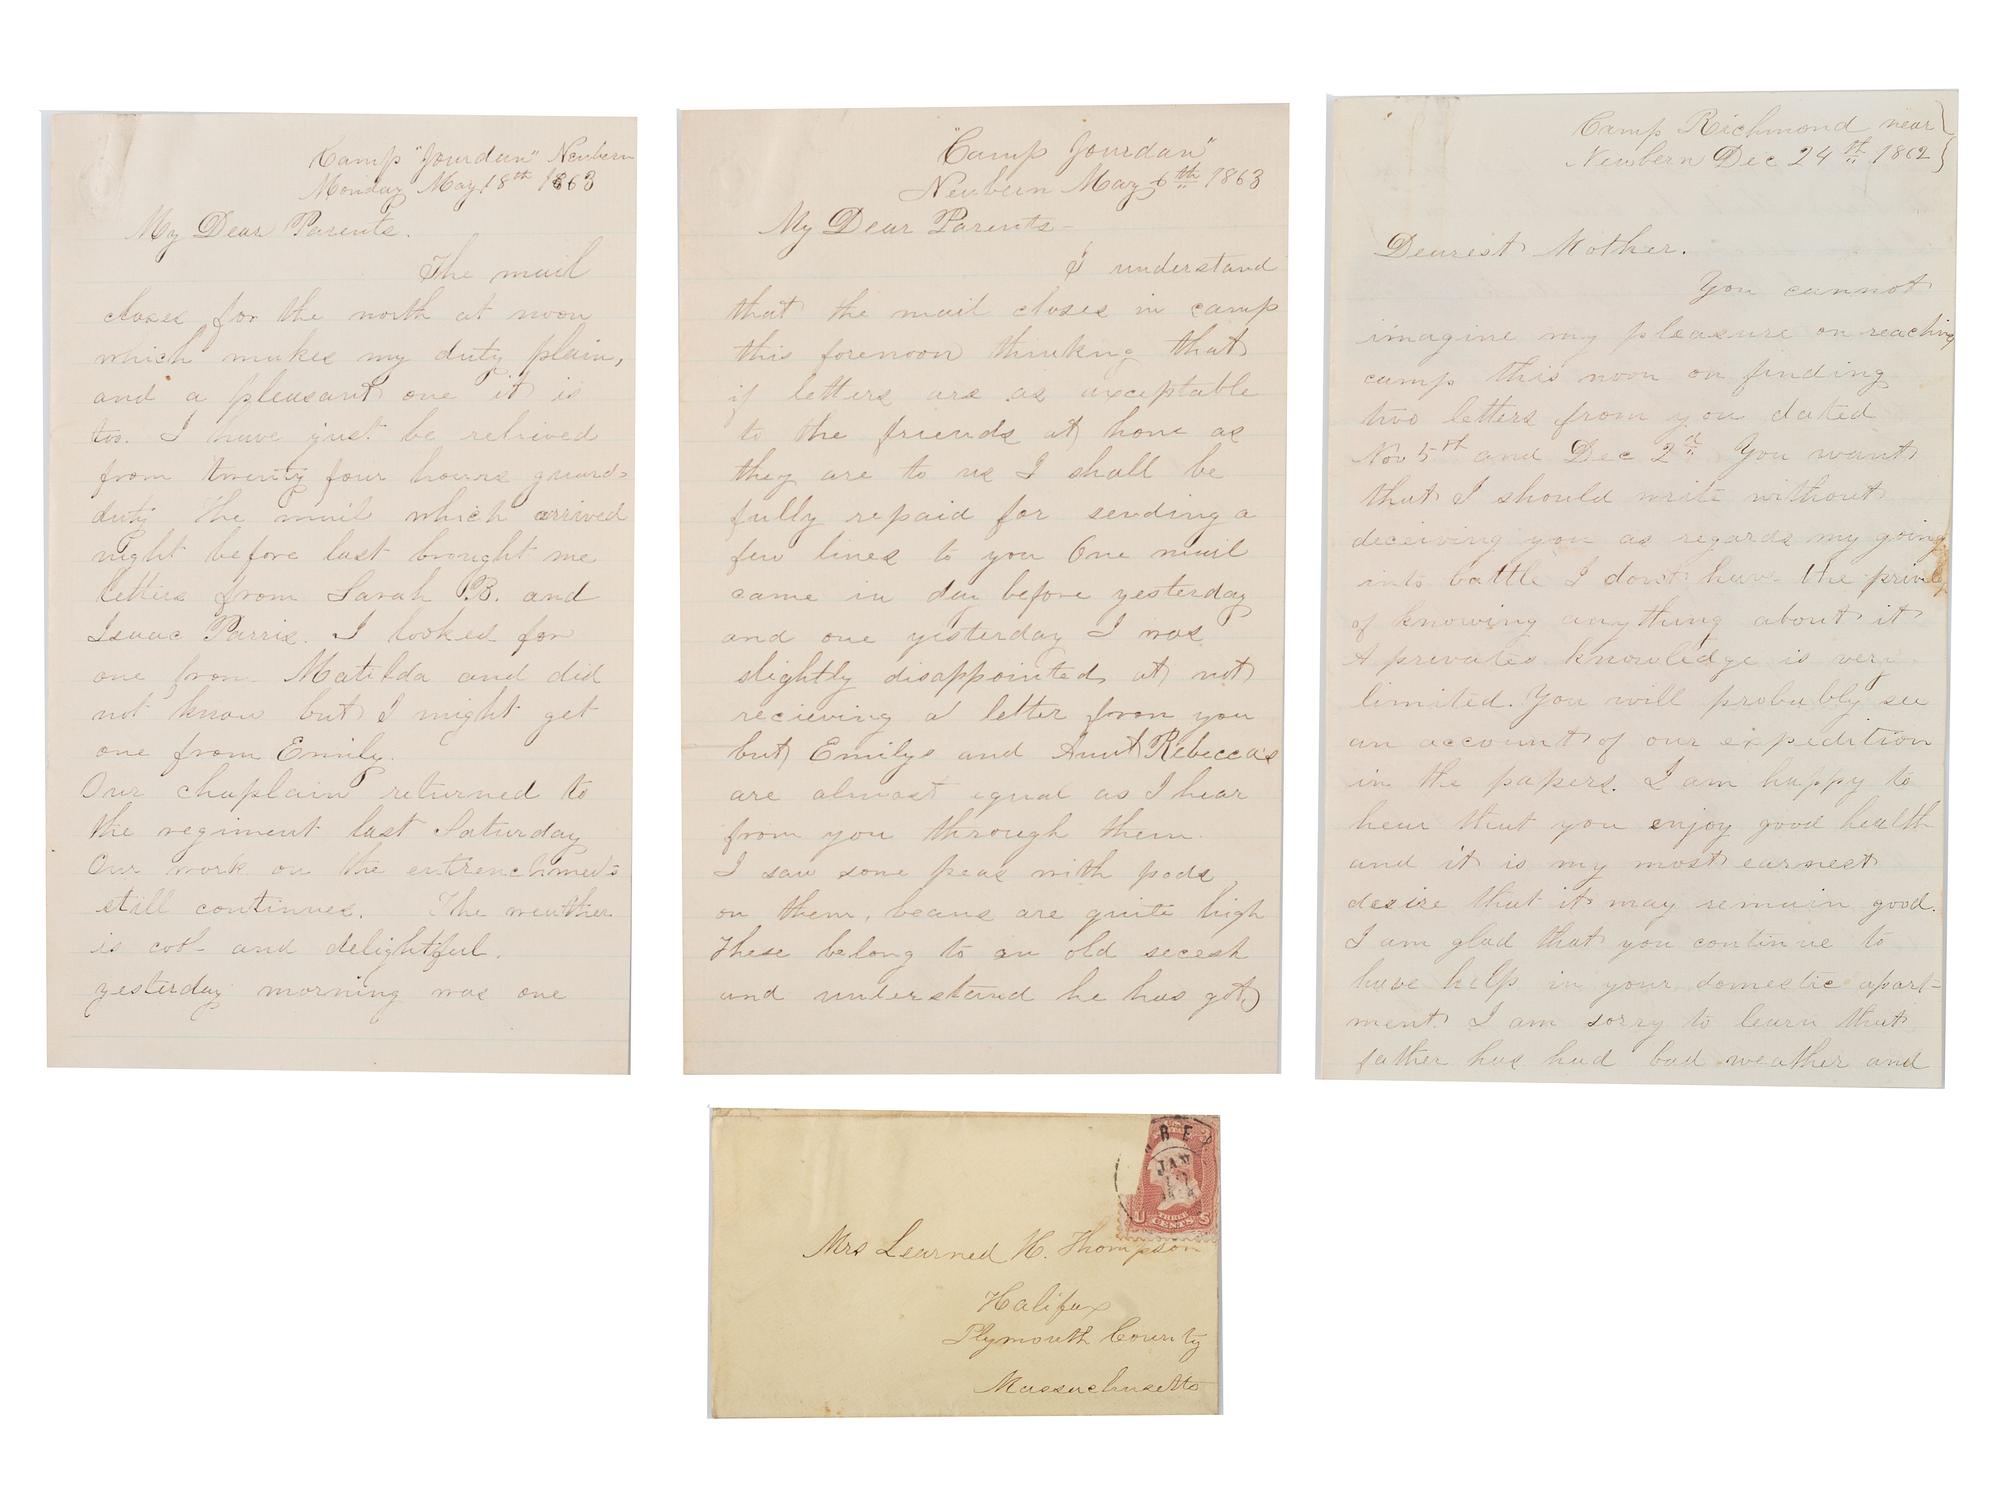 Camp "Jourdan" Newbern
Monday May 18th 1863
My Dear Parents.
The mail
closes for the north at noon
which makes my duty plain,
and a pleasant one it is
too. I have just be relieved
from twenty four hours guard-
duty The mail which arrived
night before last brought me
letters from Sarah B. and
Isaac Parris. I looked for
one from Matilda and did
not know but I might get
one from Emily.
Our chaplain returned to
the regiment last Saturday
Our work on the entrenchments
still continues. The weather
is cool and delightful.
yesterday morning was one
"Camp Jourdan"
Newbern May 6th 1863
My Dear Parents-
I understand
that the mail closes in camp
this forenoon thinking that
if letters are as axceptable
to the friends at home as
they are to us I shall be
fully repaid for sending a
few lines to you One mail
came in day before yesterday
and one yesterday I was
slightly disappointed at not
recieving a letter from you
but Emilys and Aunt Rebecca's
are almost equal as I hear
from you through them.
I saw some peas with pods
on them, beans are quite high
These belong to an old secesh
and understand he has got
Camp Richmond near
Newbern Dec 24th 1862
Dearest Mother.
You cannot
imagine my pleasure on reaching
camp this noon on finding
two letters from you dated
Nov 5th and Dec 2d You want
that I should write without
deceiving you as regards my going
into battle I dont have the privileg
of knowing anything about it
A privates knowledge is very
limited. You will probably see
an account of our expedition
in the papers. I am happy to
hear that you enjoy good health
and it is my most earnest
desire that it may remain good.
I am glad that you continue to
have help in your domestic apart-
ment. I am sorry to learn that
father has had bad weather and
JAN
U THREE CENTS S
Mrs Learned H. Thompson
Halifax
Plymouth County
Massachusetts